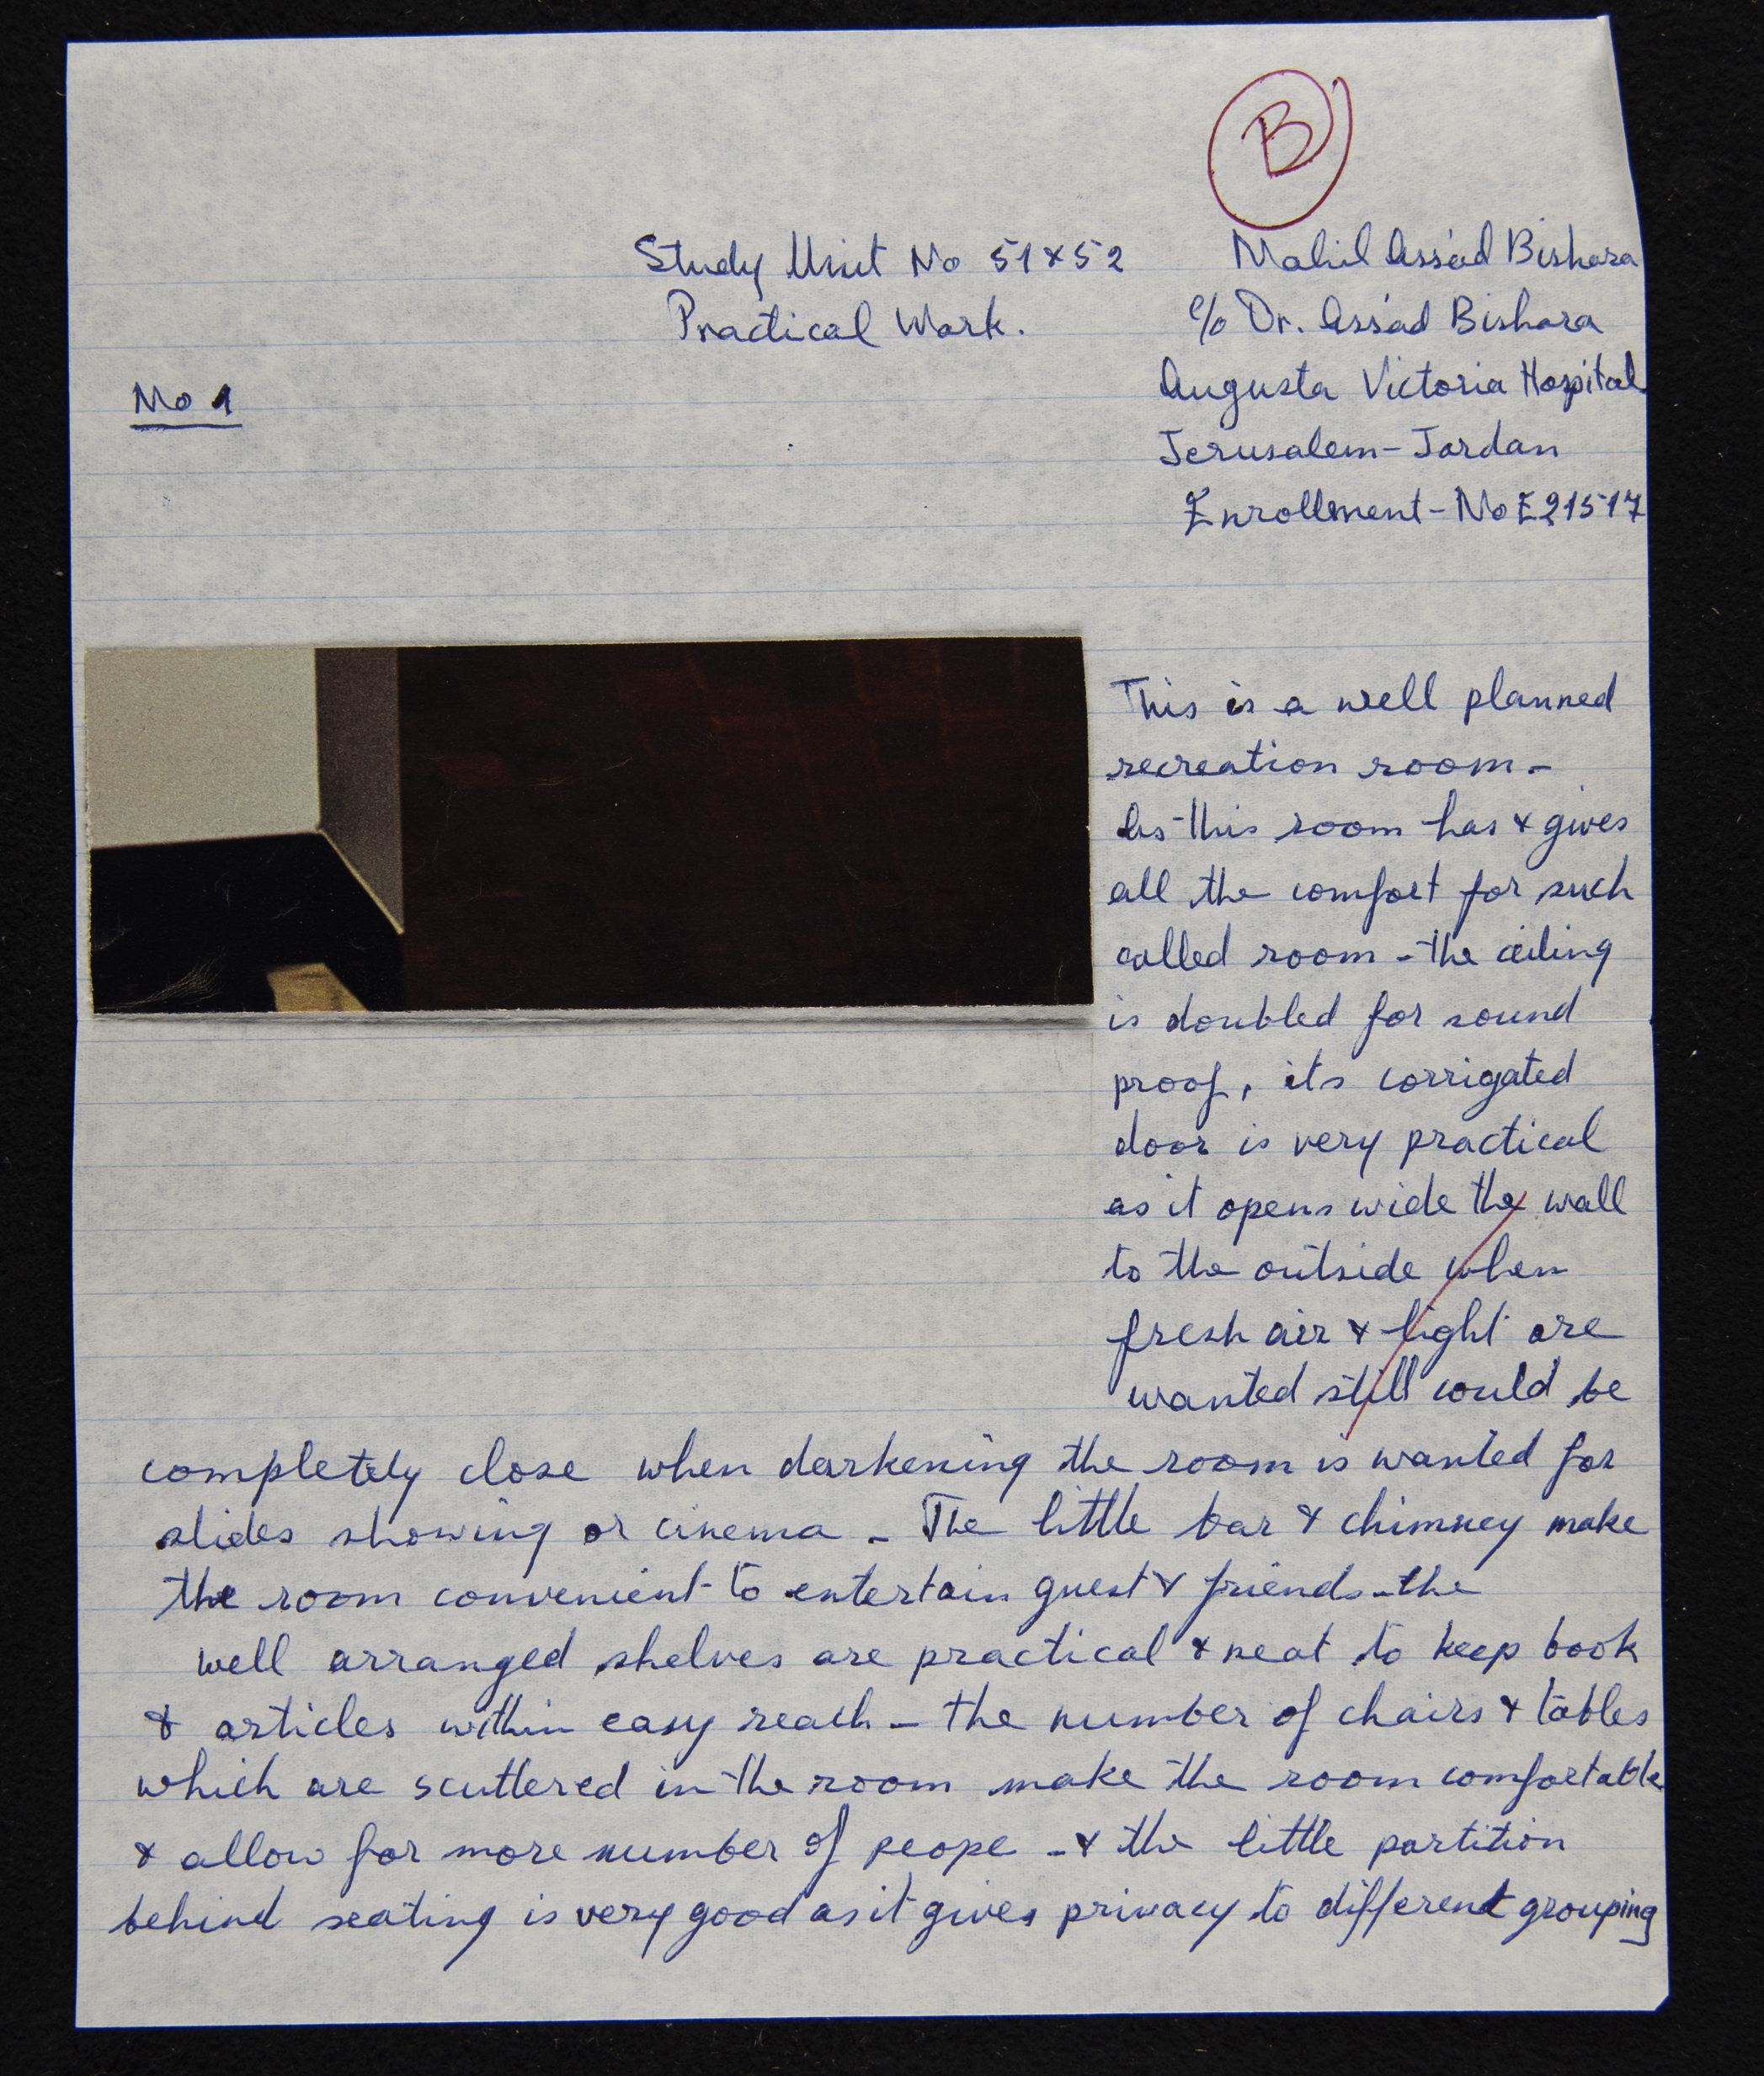 B
Study Unit No 51 & 52
Practical Work.
Mahil Assád Bishara
c/o Dr. Assád Bishara
Augusta Victoria Hospital
Jerusalem - Jordan
Enrollment - No E21517
No 1
This is a well planned
recreation room -
As this room has & gives
all the comfort for such
called room - the ceiling
is doubled for sound
proof, its corrigated
door is very practical
as it opens wide the wall
to the outside when
fresh air & light are
wanted still could be
completely close when darkening the room is wanted for
slides showing or cinema - The little bar & chimney make
the room convenient to entertain guest & friends - the
well arranged shelves are practical & neat to keep book
& articles within easy reach - the number of chairs & tables
which are scuttered in the room make the room comfortable
& allow for more number of peope - & the little partition
behind seating is very good as it gives privacy to different grouping